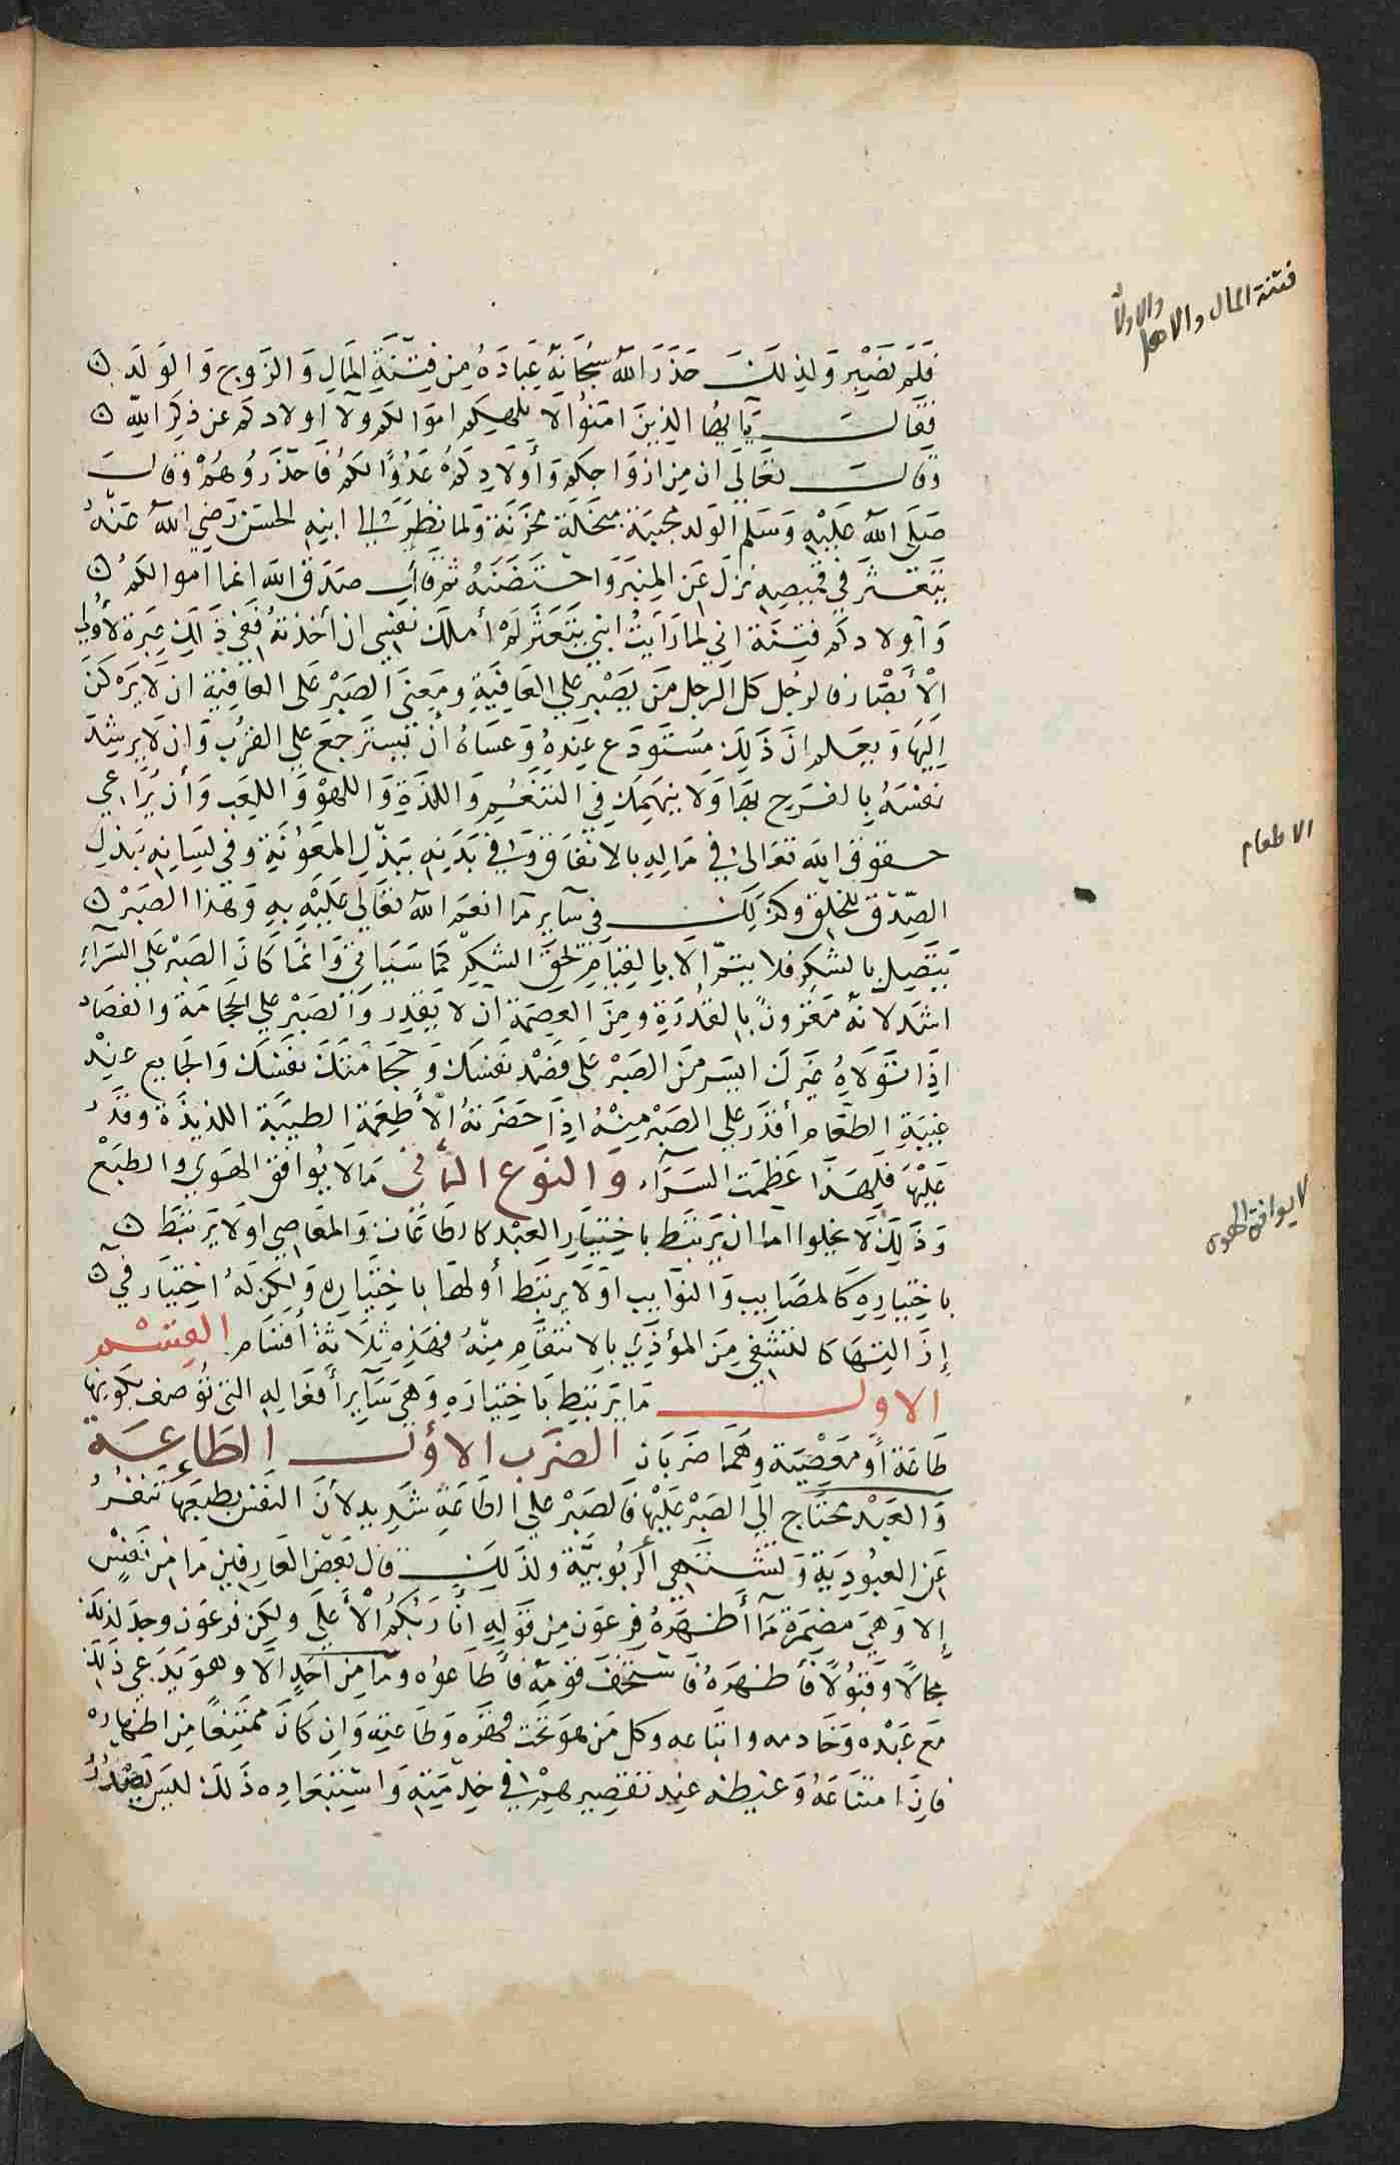 فتنة المال والاهل
والاولاد
فَلَم نصْبِر وَلِذلكَ حَذرَ اللهُ سُبْحَانَهُ عِبَادَهُ مِن فِتنَةِ المَالِ وَالزَوج وَالوَلَد
فقالَ يَا ايهُا الذينَ امَنُوا لا يلهيكم اموالكم ولا اولادكم عن ذِكر الله
وَقَالَ تعَالَى ان مِن ازوَاجكم وَأولَادِكمُ عَدُوًا لكمُ فَاحذَرُوهُمْ وَقالَ
صَلى اللهُ عَليْهِ وَسَلم الوَلد مجبَنة مبخَلة محزَنَة وَلما نظرَ الى ابنِهِ الحسَن رَضي اللهُ عَنْهُ
يَتَعَثرَ في قميصِهِ نزلَ عَن المِنبَر وَاحتَضَنَهُ ثم قَالَ صَدَق الله انما اموالكمُ
وَاولادكم فتِنَة اني لما رَايتُ ابني يتَعَثرَ لَم أملكَ نفسِي ان أخَذتهُ ففي ذَلِكَ عِبرَة لأولي
الْأبصَار فالرجُل كل الرجل مَن يَصْبر علي العَافيَةِ ومَعنَى الصَبْر عَلى العَافيَةِ ان لَا يَرْكنَ
اِليهَا وَيعلم انَ ذَلِكَ مُستَودَع عِندَهُ وَعسَاهُ أن يُستَرجعَ عَلي القُرب وَان لَا يرسِلَ
نفسَهُ بِالفرَح بهَا وَلا ينهَمِك فِي التنَعُّمِ وَاللذَةِ وَاللهوْ وَاللعَب وَأن يُرَاعي
حقوق الله تعَالىَ في مَالِهِ بالانفَاق وَفي بَدَنِهِ ببَذلِ المعَوُنَةِ وَفي لِسَانِهِ بَبذلِ
الصِدْق للخلق وكذلكَ في سَايرِ مَا انعَم اللهُ تعَالي عَليْهِ بهِ وَهَذا الصَبْر
يَتَصِل بالشكرِ فلا يتمّ الَا بِالقيَامِ بحق الشكرِ كمَا سَيَاتيِ وَانمَا كانَ الصَبْر علَي السَرآءِ
اشَد لانهُ مَقرُونٌ بالقدرَةِ ومِنَ العِصمَةِ ان لا يَقدِر وَالصَبْر علي الحجَامَة والفصَاد
اذَا تَوَلاهُ غيَركَ ايسَر مِنَ الصَبْر عَلى فَصْدِ نَفسَكَ وَحجَامَتكَ نفسَكَ وَالجَايِع عِنْد
غيبَةِ الطعَام أقدَر علي الصَبْر مِنْهُ اِذَا حَضَرتهُ الأطعِمَة الطيبَة اللذِيذَة وقدَر
عَليْهَا فَلِهذَا عَظمَت السَرآء وَالنوَع الثاني مَا لَا يُوَافق الهَوَي والطبَعْ
وَذلِكَ لَا يخلوا اما ان يَرتبَط باختِيَارِ العَبْد كالطاعَاتِ وَالمعَاصِي اولَا يَرتَبَط
باختِيَارِهِ كَالمصَايِب وَالنوَايب اوْ لَا يرتبَط أولهَا باختِيَاره وَلكِن لَهُ اختِيَار في
إزَالتِهَا كالتشفي مِنَ المؤذِي بِالانتقَام مِنهُ فهَذِهِ ثلَاثةُ أقسَام القِسْم
الاول مَا يَرتَبِط بَاختِيَارِه وَهيَ سَآيِر أفعَالِهِ التي تُوصَف بكونها
طَاعَة أو مَعْصِيَة وَهمَا ضرَبَانِ الضرب الاول الطَاعَة
وَالعَبْد يحتَاج الي الصَبْر عَليْهَا فَالصَبْر علي الطاعَةِ شَدِيد لأنَ النَفسَ بطبعِهَا تَنفرُ
عَن العبُودِيَةِ وَتشتَهِي الرُبوبيَّة ولذلِكَ قالَ بَعضَ العَارِفين مَا مِن نَفسٍ
إلا وَهيَ مضمِرَة مَا أظهَرَهُ فِرعَون مِن قَولِهِ انَا رَبُكُمُ الْأعلَى ولكِن فرعَون وجدَ لذلكَ
مجَالًا وَقبُولًا فأظهَرَهُ فَاستخَفَ قومَهُ فأطَاعوُه ومَا مِن أحدٍ الَا وهوَ يَدَعي ذلكَ
مَع عَبْده وَخَادمه واتبَاعه وكل مَن هوَ تَحت قهرِه وَطاعَتِهِ وَإن كَانَ ممتَنعًا مِن اظهارِه
فَاِنَ امتنَاعَهُ وَغيظه عِند تقصِيرِهِمْ فِي خِدْمَتِهِ وَاستِبعَادِه ذَلَكَ ليسَ يَصْدُرُ
الاطعام
لا يوافق الهوى